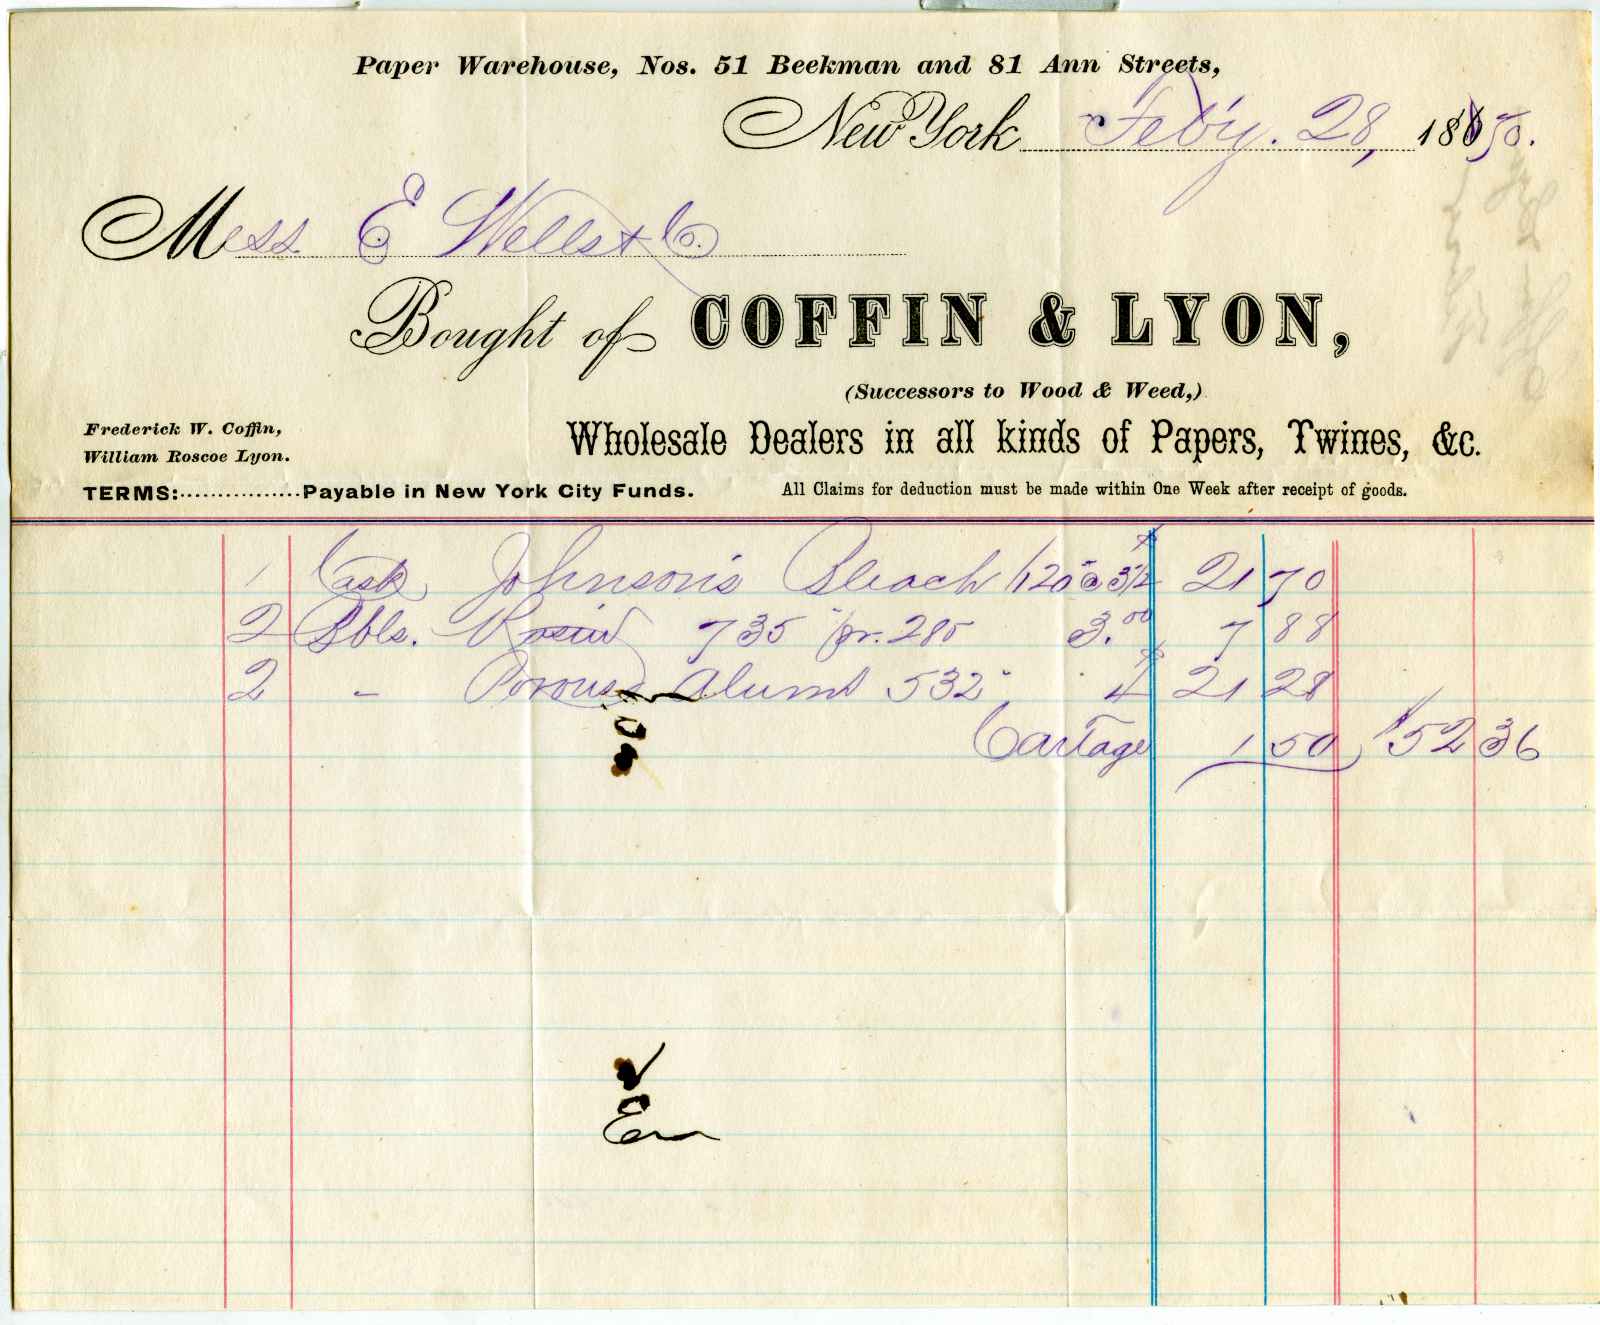 Paper Warehouse, Nos. 51 Beekman and 81 Ann Streets,
New York Feb'y. 28, 1870.
Mess E Wells & Co.
Bought of COFFIN & LYON,
(Successors to Wood & Weed,)
Frederick W. Coffin,
William Roscoe Lyon.
Wholesale Dealers in all kinds of Papers, Twines, &c.
TERMS:................Payable in New York City Funds. All Claims for deduction must be made within One Week after receipt of goods.
1 Cask Johnson's Bleach 3½ 21 70
2 Bbls. Rosin 735 pr. 280 3.00 7 88
2 - Porous Alum 532 4 21 28
Cartage 1 50 $52 36